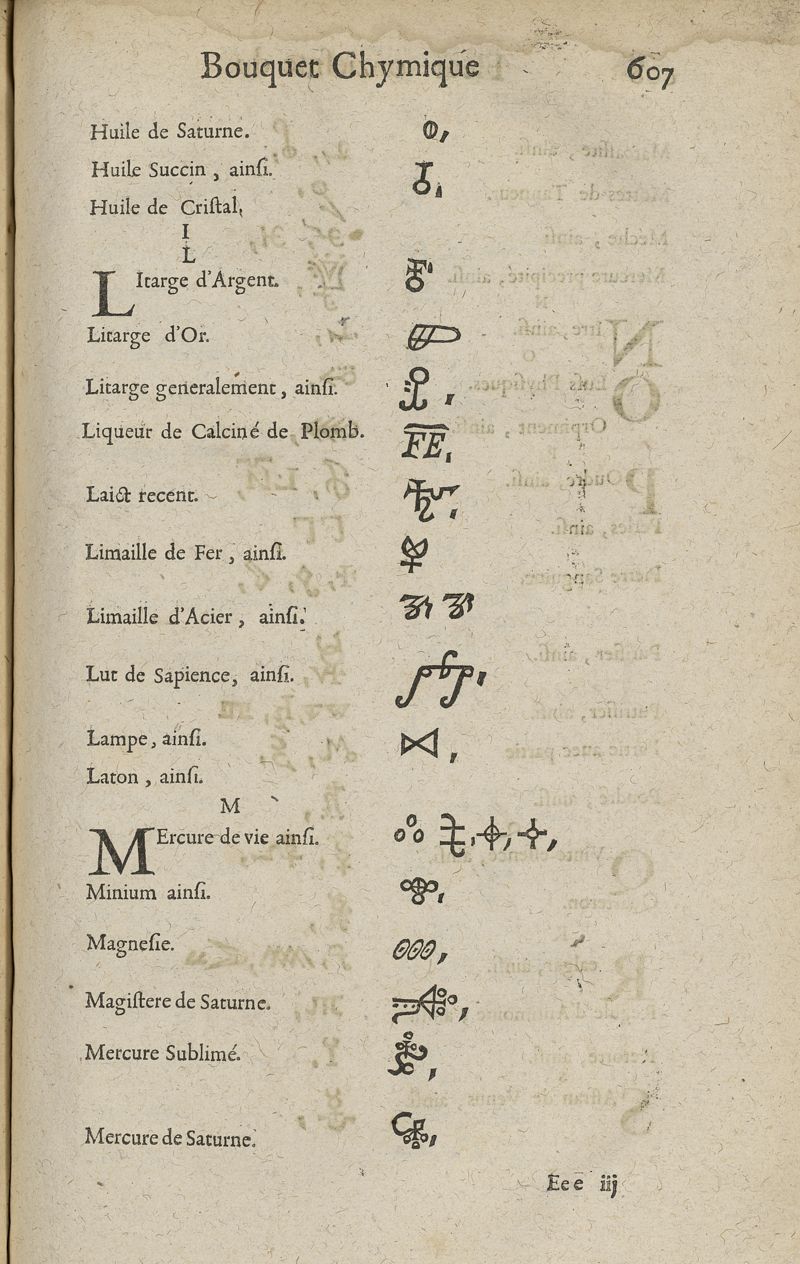 Bouquet Chymique 607
Huile de Saturne.
Huile Succin , ainſi.
Huile de Criſtal,
I
L
LItarge d'Argent.
Litarge d'Or.
Litarge generalement , ainſi.
Liqueur de Calciné de Plomb.
Laict recent.
Limaille de Fer , ainſi.
Limaille d'Acier , ainſi.
Lut de Sapience, ainſi.
Lampe, ainſi.
Laton , ainſi.
M
MErcure de vie ainſi.
Minium ainſi.
Magneſie.
Magiſtere de Saturne.
Mercure Sublimé.
Mercure de Saturne.
Eee iij